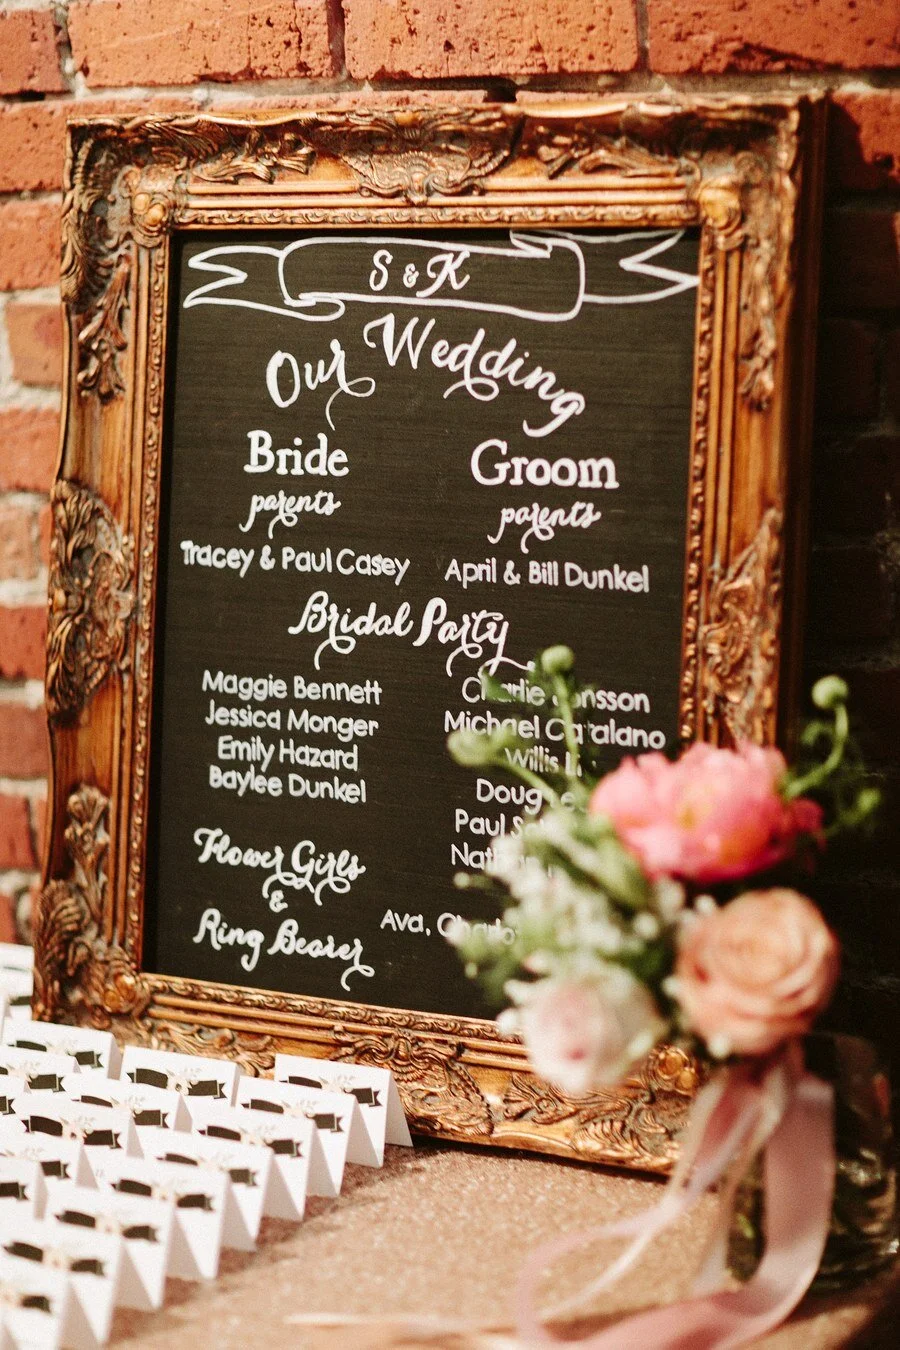 S & K
Our Wedding
Bride
parents
Tracey & Paul Casey
Groom
parents
April & Bill Dunkel
Bridal Party
Maggie Bennett
Jessica Monger
Emily Hazard
Baylee Dunkel
Charlie
Michael Catalano
Willis
Doug
Paul
Flower Girls
&
Ring Bearer
Ava,